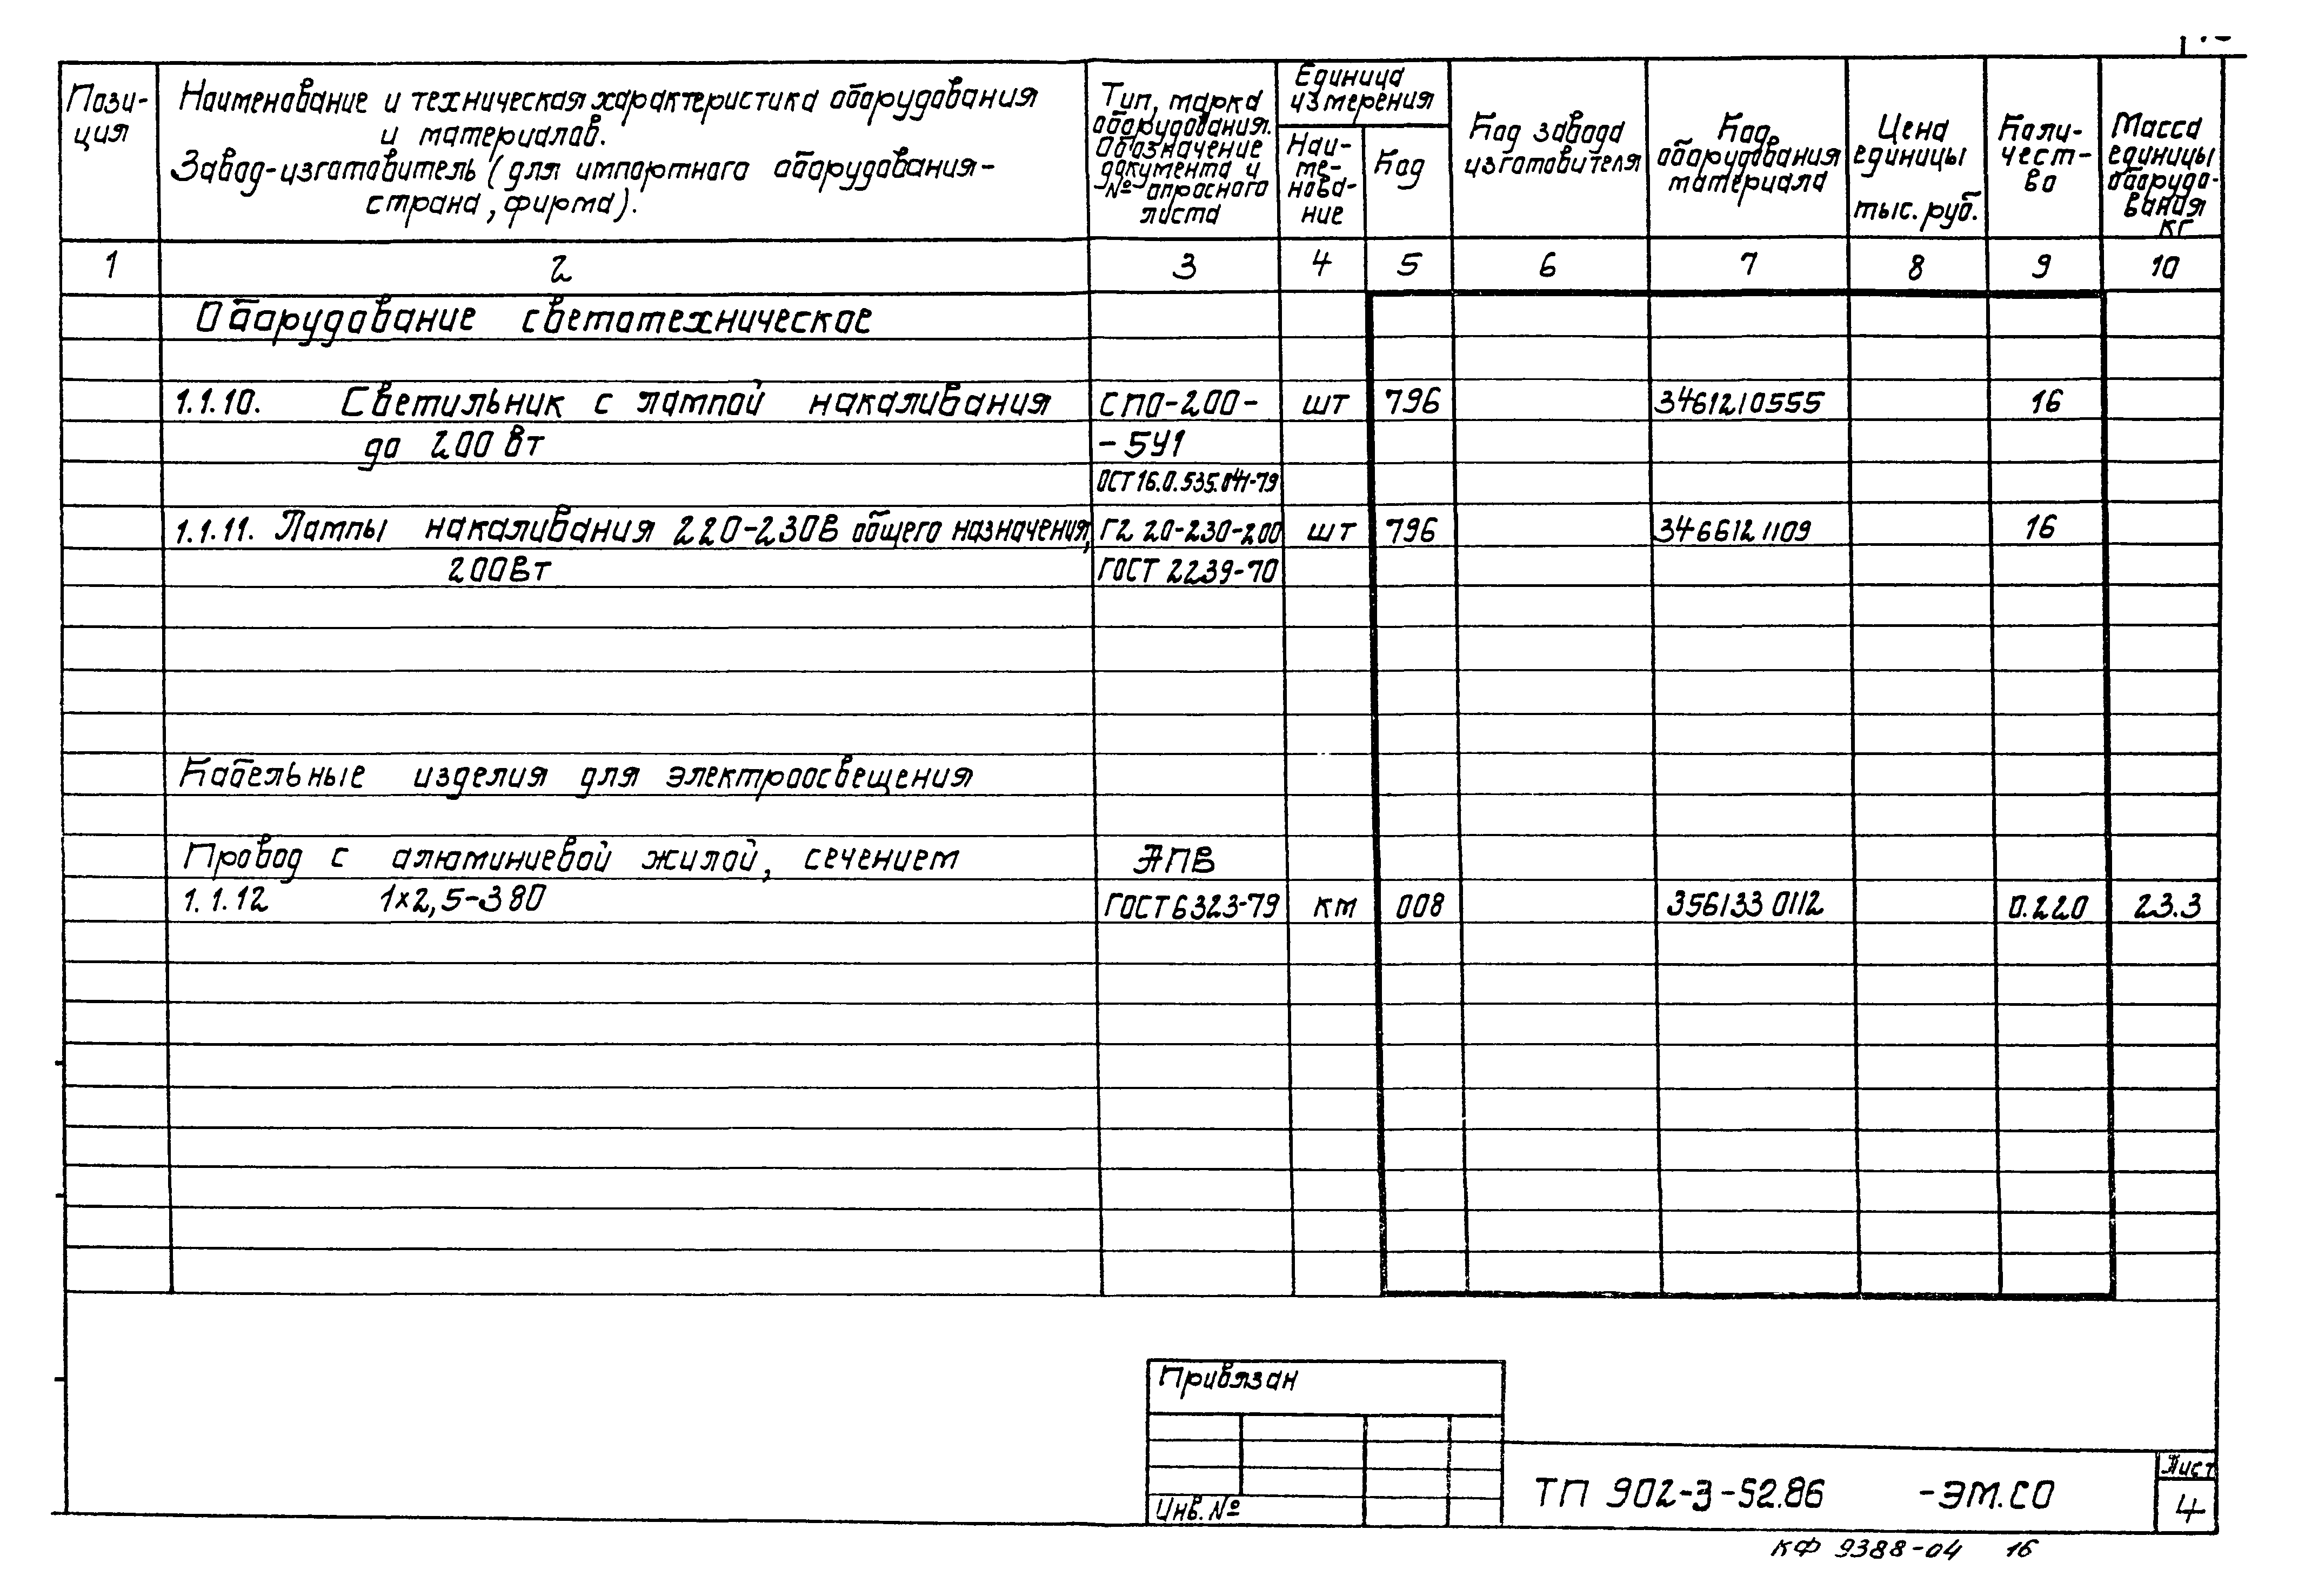 Пози-
ция
Наименование и техническая характеристика оборудования
и материалов.
Завод-изготовитель (для импортного оборудования-
страна, фирма).
Тип, марка
оборудования.
Обозначение
документа и
№ опросного
листа
Единица
измерения
Наи-
ме-
нова-
ние
Код
Код завода
изготовителя
Код
оборудования
материала
Цена
единицы
тыс. руб.
Коли-
чест-
во
Масса
единицы
оборудо-
вания
кг
1 2 3 4 5 6 7 8 9 10
Оборудование светотехническое
1.1.10. Светильник с лампой накаливания СПО-200- шт 796 3461210555 16
до 200 Вт -5У1
ОСТ 16.0.535.041-79
1.1.11. Лампы накаливания 220-230В общего назначения, Г2 20-230-200 шт 796 3466121109 16
200Вт ГОСТ 2239-70
Кабельные изделия для электроосвещения
Провод с алюминиевой жилой, сечением АПВ
1.1.12 1×2,5-380 ГОСТ 6323-79 км 008 3561330112 0.220 23.3
Привязан
Инв. №
ТП 902-3-52.86 -ЭМ.СО
Лист
4
КФ 9388-04 16